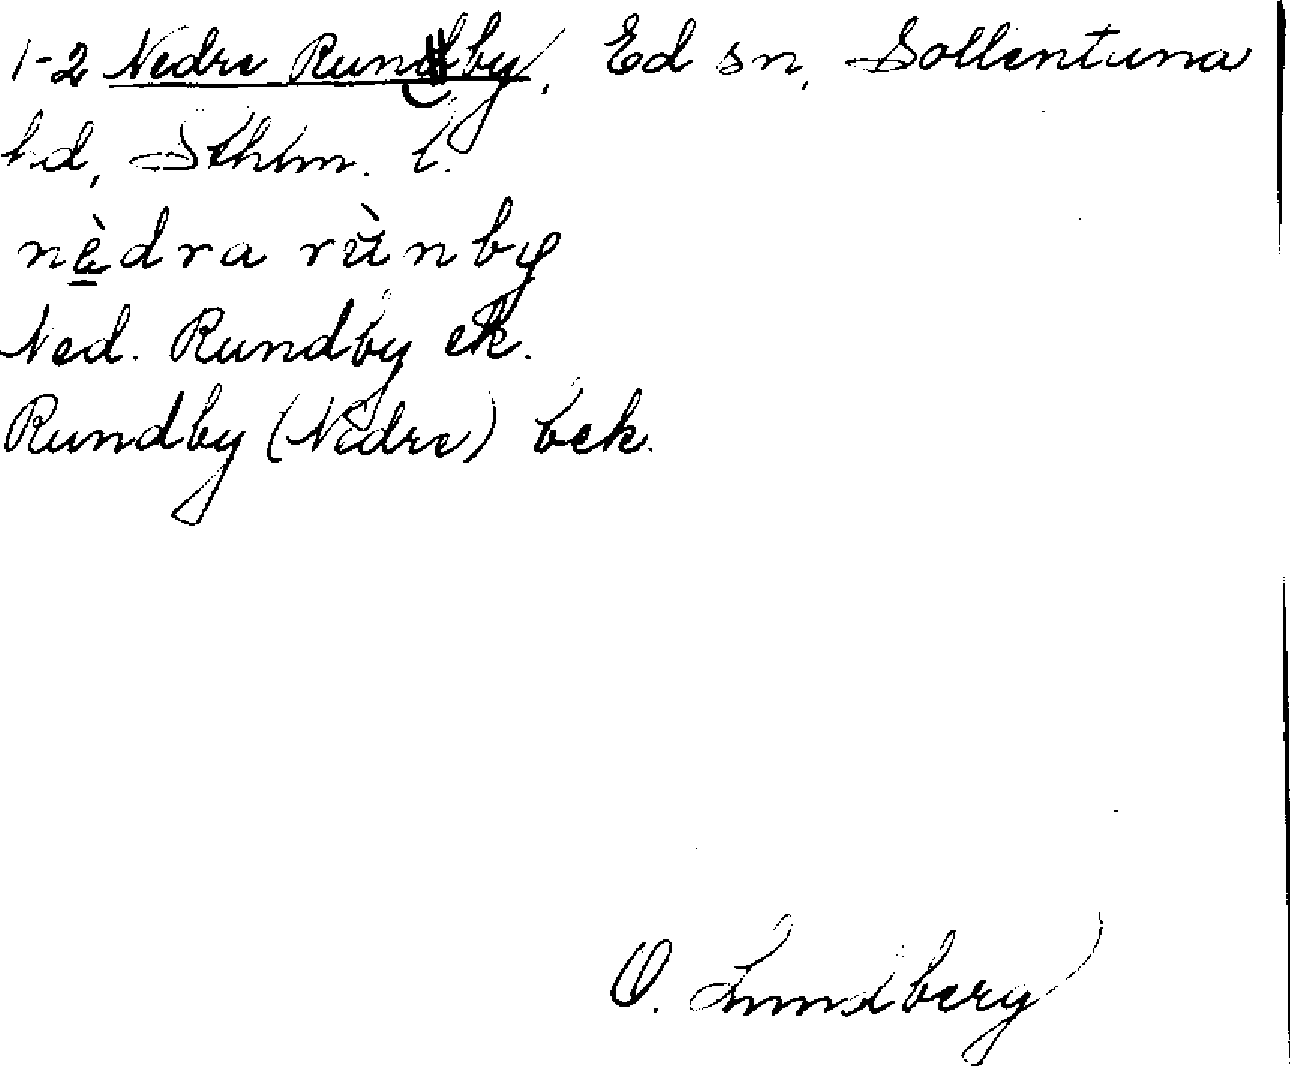 1-2 Nedre Runby, Ed sn, Sollentuna
hd, Sthlm. l.
nèdra rùnby
Ned. Rundby ek.
Rundby (Nedre) bek.
O. Lundberg